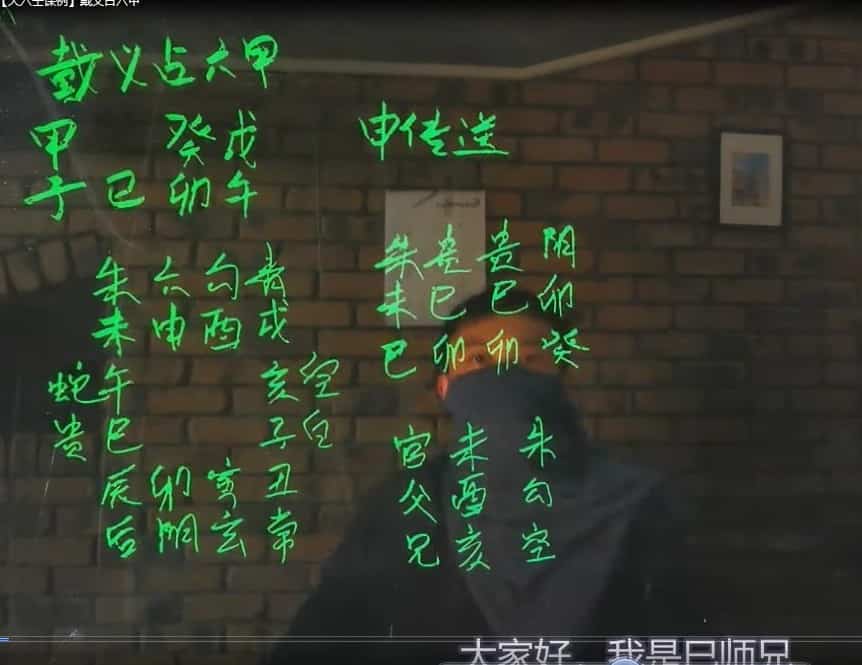 【大六壬课例】戴义占六甲
戴义占六甲
甲 癸戊
子 巳 卯 午
申传送
朱 六 勾 青
未 申 酉 戌
蛇 午 亥 空
贵 巳 子 白
辰 卯 寅 丑
后 阴 玄 常
朱 贵 贵 阴
未 巳 巳 卯
巳 卯 卯 癸
官 未 朱
父 酉 勾
兄 亥 空
大家好，我是巳师兄